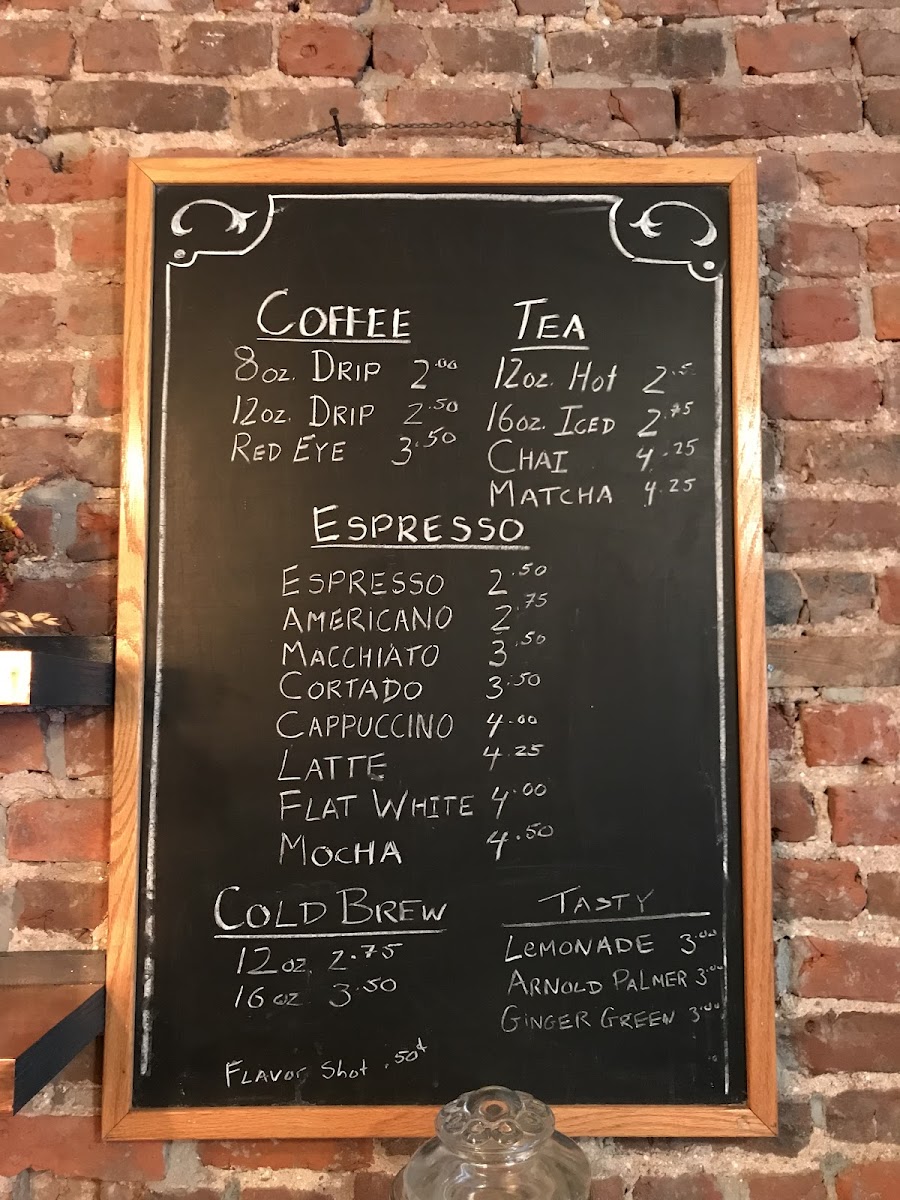 COFFEE
8oz. DRIP 2.00
12oz. DRIP 2.50
RED EYE 3.50
TEA
12oz. Hot 2.5
16oz. ICED 2.75
CHAI 4.25
MATCHA 4.25
ESPRESSO
ESPRESSO 2.50
AMERICANO 2.75
MACCHIATO 3.50
CORTADO 3.50
CAPPUCCINO 4.00
LATTE 4.25
FLAT WHITE 4.00
MOCHA 4.50
COLD BREW
12oz. 2.75
16oz 3.50
FLAVOR SHOT .50¢
TASTY
LEMONADE 3.00
ARNOLD PALMER 3.00
GINGER GREEN 3.00